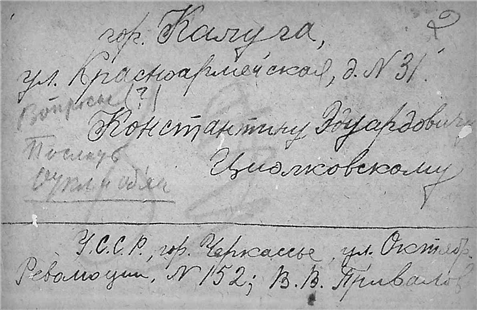 гор. Калуга,
ул. Красноармейская, д. N 31.
Вопросы (?)
Константину Эдуардовичу
Послать
Циолковскому
У.С.С.Р., гор. Черкассы, ул. Октябр.
Революции, N 152; В. В. Привалов